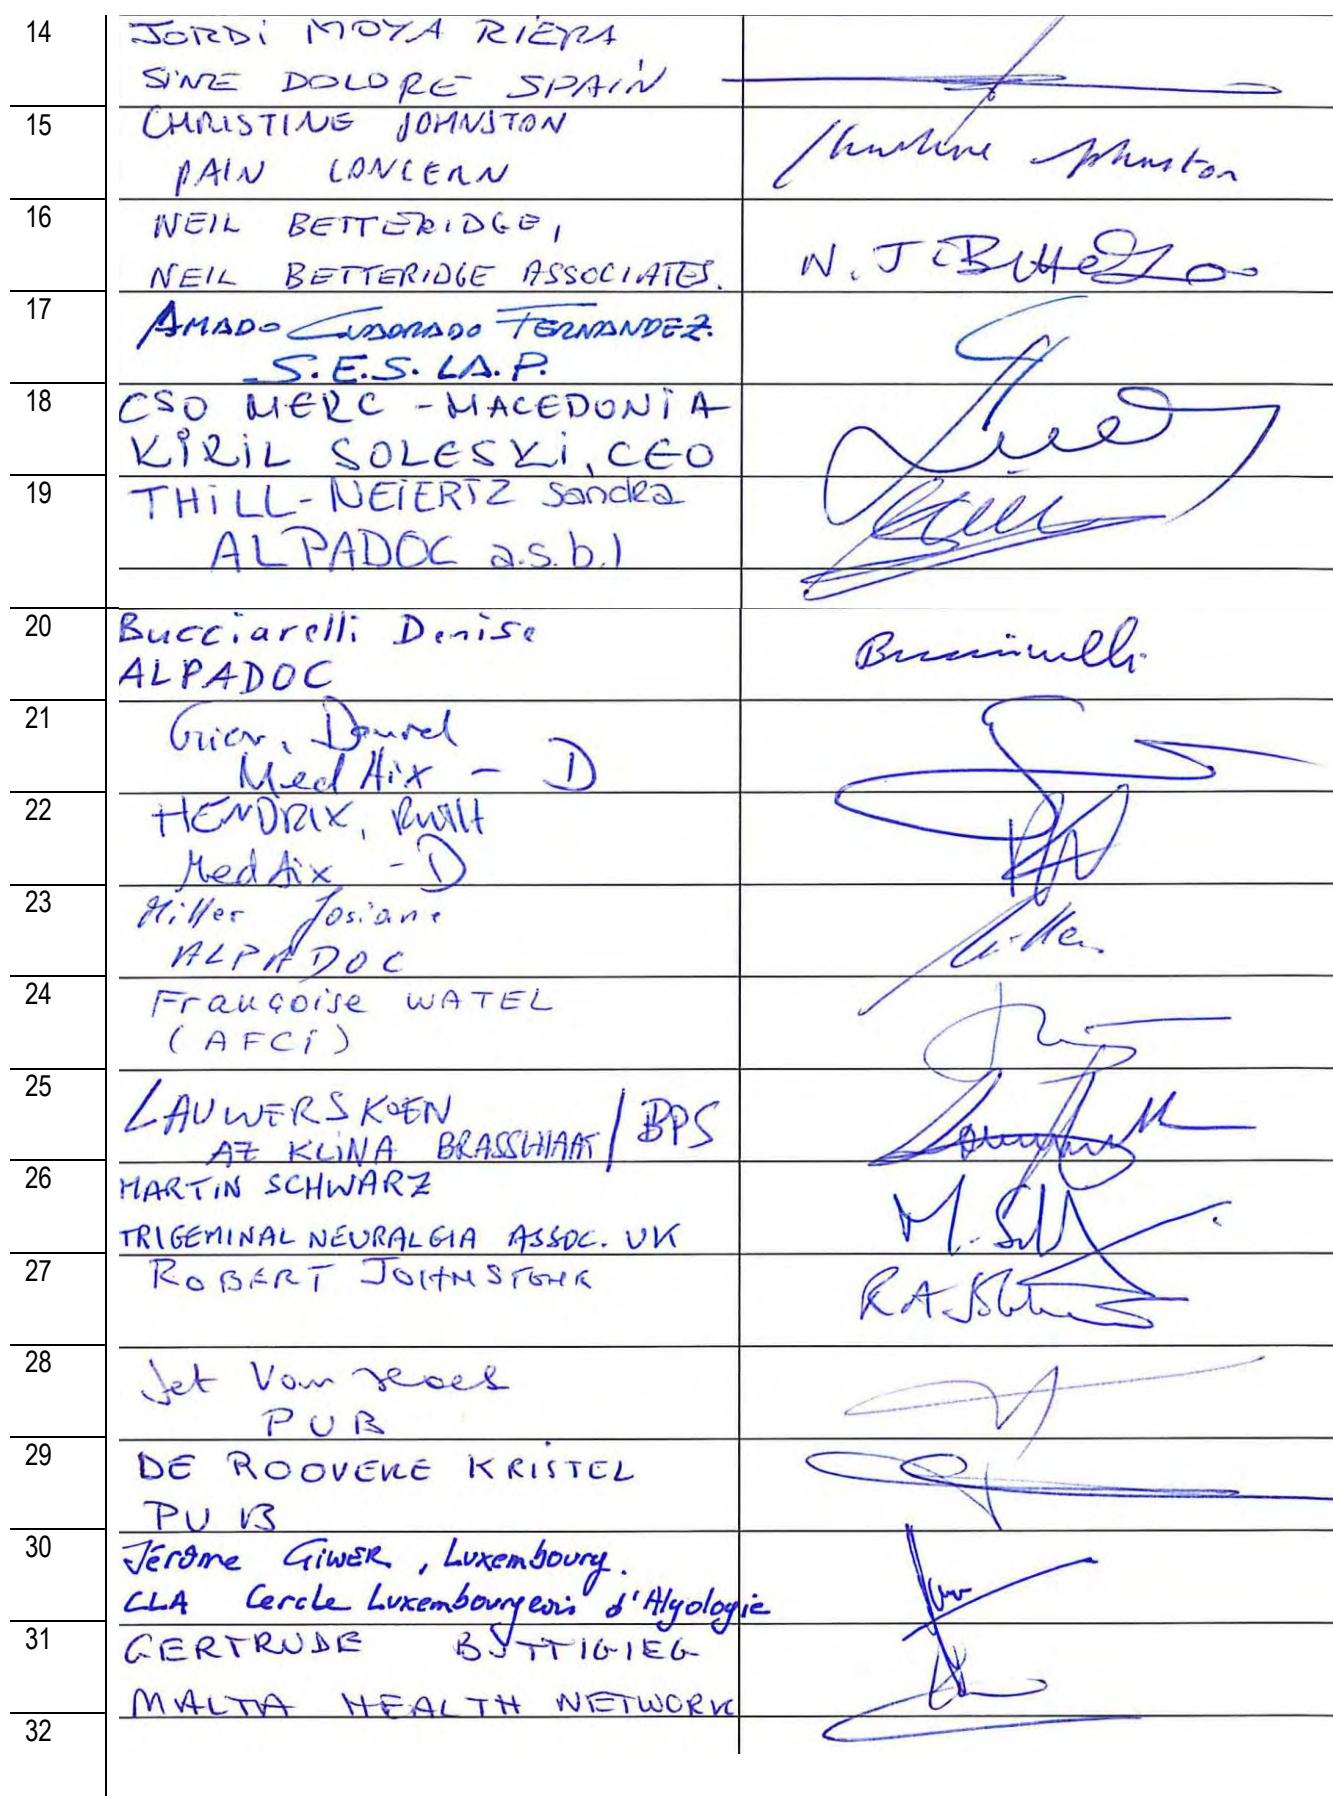 14
JORDI MOYA RIERA
SINE DOLORE SPAIN
15
CHRISTINE JOHNSTON
PAIN CONCERN
Christine Johnston
16
NEIL BETTERIDGE,
NEIL BETTERIDGE ASSOCIATES.
17
AMADO CUADRADO FERNANDEZ.
S.E.S. LA.P.
18
CSO MERC - MACEDONIA
KIRIL SOLESKI, CEO
19
THILL-NEIERTZ Sandra
ALPADOC a.s.b.l
20
Bucciarelli Denise
ALPADOC
Bucciarelli
21
MedAix - D
22
HENDRIX, Ruth
MedAix - D
23
Miller Josiane
ALPADOC
Miller
24
Françoise WATEL
(AFCI)
25
LAUWERS KOEN
AZ KLINA BRASSCHAAT / BPS
26
MARTIN SCHWARZ
TRIGEMINAL NEURALGIA ASSOC. UK
27
ROBERT JOHNSTONE
28
Jet Van
PUB
29
DE ROOVERE KRISTEL
PUB
30
Jérôme GIWER, Luxembourg.
CLA Cercle Luxembourgeois d'Algologie
31
GERTRUDE BUTTIGIEG
MALTA HEALTH NETWORK
32